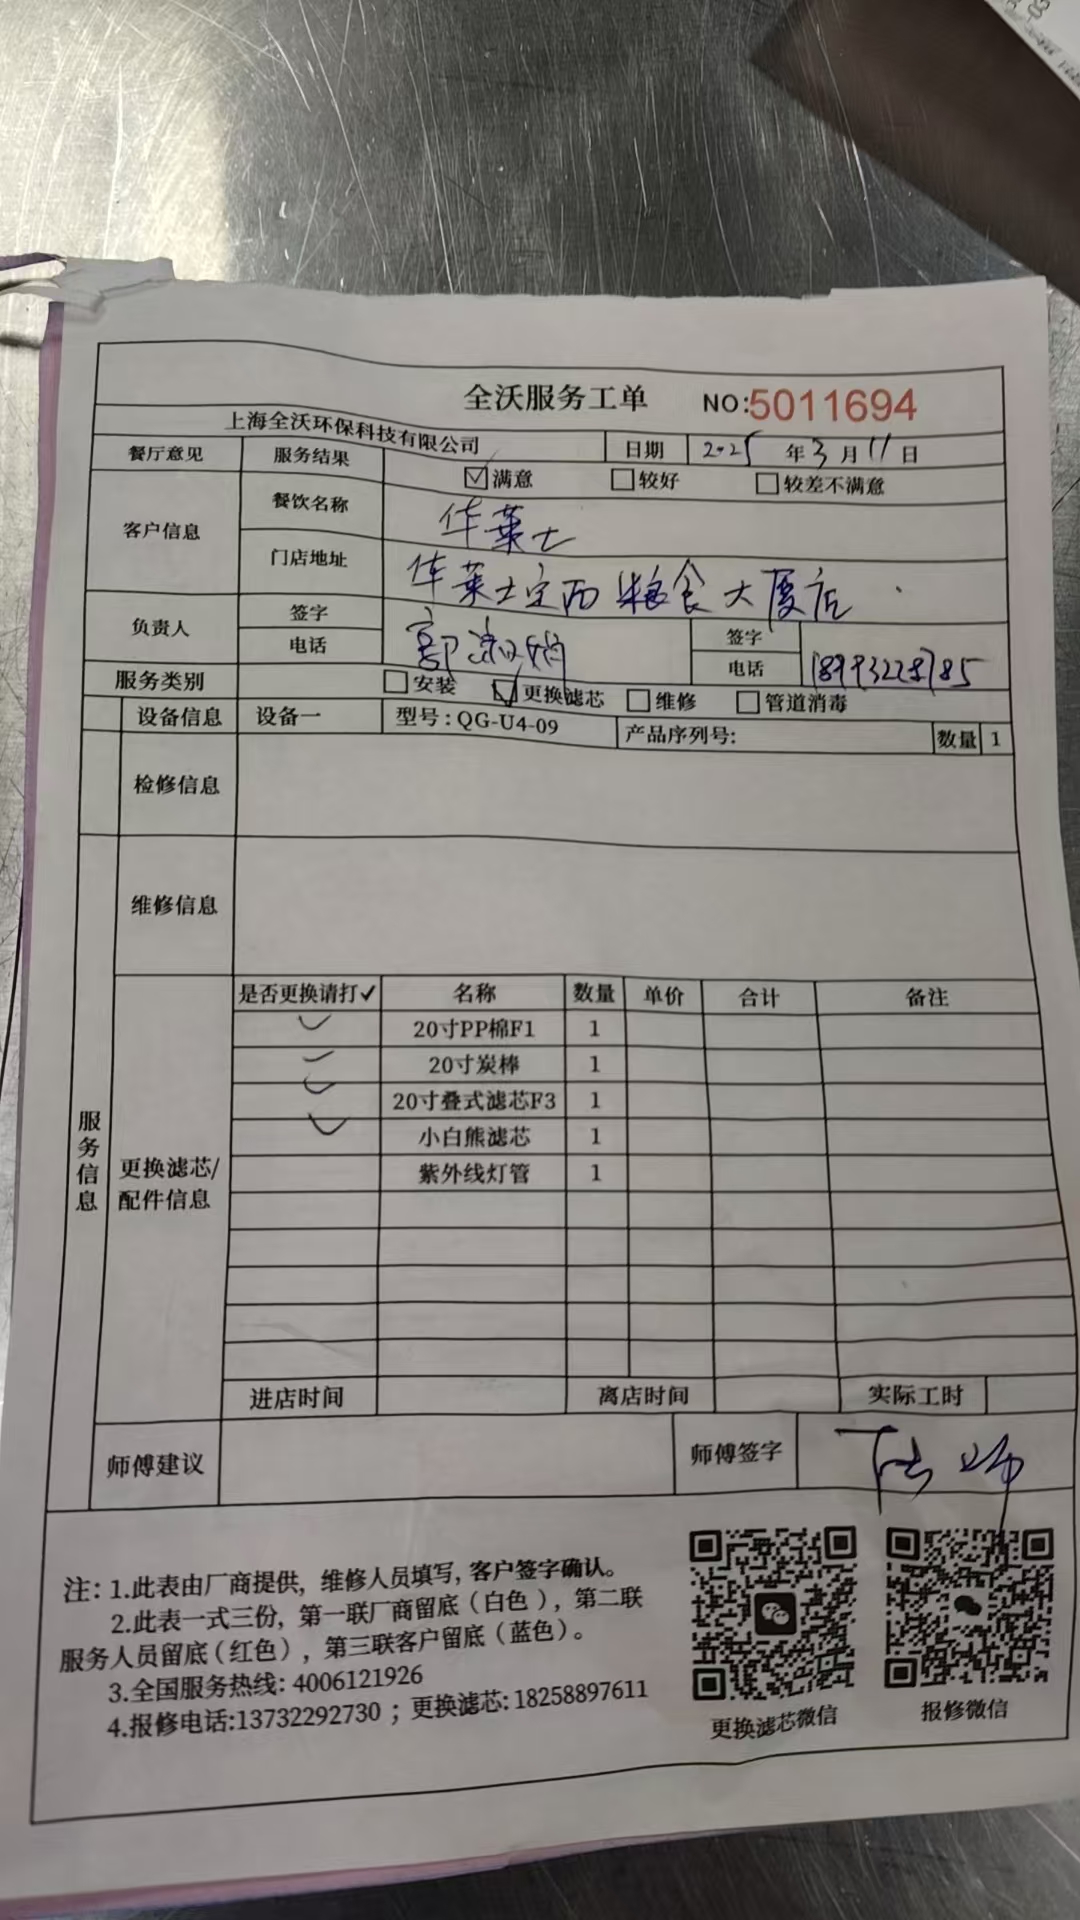 全沃服务工单 NO:5011694
上海全沃环保科技有限公司 日期 2025 年 3 月 11 日
餐厅意见 服务结果 ☑满意 □较好 □较差不满意
客户信息 餐饮名称 华莱士
门店地址 华莱士定西粮食大厦店
负责人 签字 郭 签字
电话 电话
服务类别 □安装 ☑更换滤芯 □维修 □管道消毒
设备信息 设备一 型号:QG-U4-09 产品序列号: 数量 1
检修信息
维修信息
服务信息
更换滤芯/配件信息
是否更换请打✓ 名称 数量 单价 合计 备注
✓ 20寸PP棉F1 1
✓ 20寸炭棒 1
✓ 20寸叠式滤芯F3 1
✓ 小白熊滤芯 1
紫外线灯管 1
进店时间 离店时间 实际工时
师傅建议 师傅签字
注: 1.此表由厂商提供, 维修人员填写, 客户签字确认。
2.此表一式三份, 第一联厂商留底（白色）, 第二联
服务人员留底（红色）, 第三联客户留底（蓝色）。
3.全国服务热线: 4006121926
4.报修电话:13732292730 ; 更换滤芯: 18258897611
更换滤芯微信 报修微信